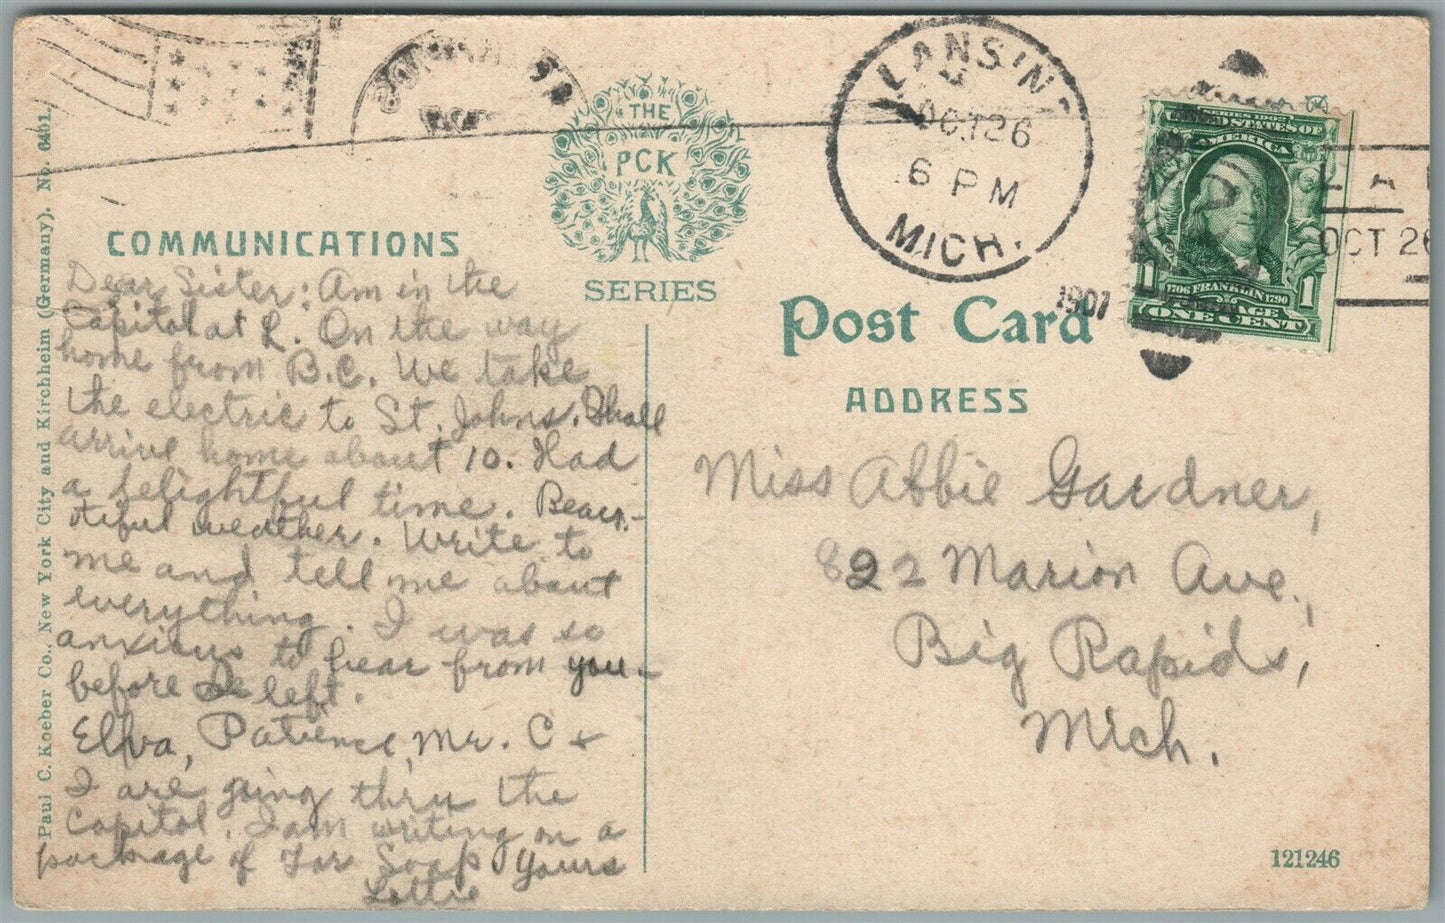 THE
PCK
SERIES
COMMUNICATIONS
Dear Sister: Am in the
Capitol at L. On the way
home from B.C. We take
the electric to St. Johns. Shall
arrive home about 10. Had
a delightful time. Beau-
tiful weather. Write to
me and tell me about
everything. I was so
anxious to hear from you
before I left.
Elva, Patience, Mr. C +
I are going thru the
Capitol. I am writing on a
package of Tar Soap. Yours
Lottie
Paul C. Koeber Co., New York City and Kirchheim (Germany). No. 6401.
LANSING
OCT 26
6 PM
MICH.
1907
SERIES 1902
STATES OF
AMERICA
1706 FRANKLIN 1790
POSTAGE
1 ONE CENT 1
LA
OCT 26
Post Card
ADDRESS
Miss Abbie Gardner,
822 Marion Ave.,
Big Rapids,
Mich.
121246